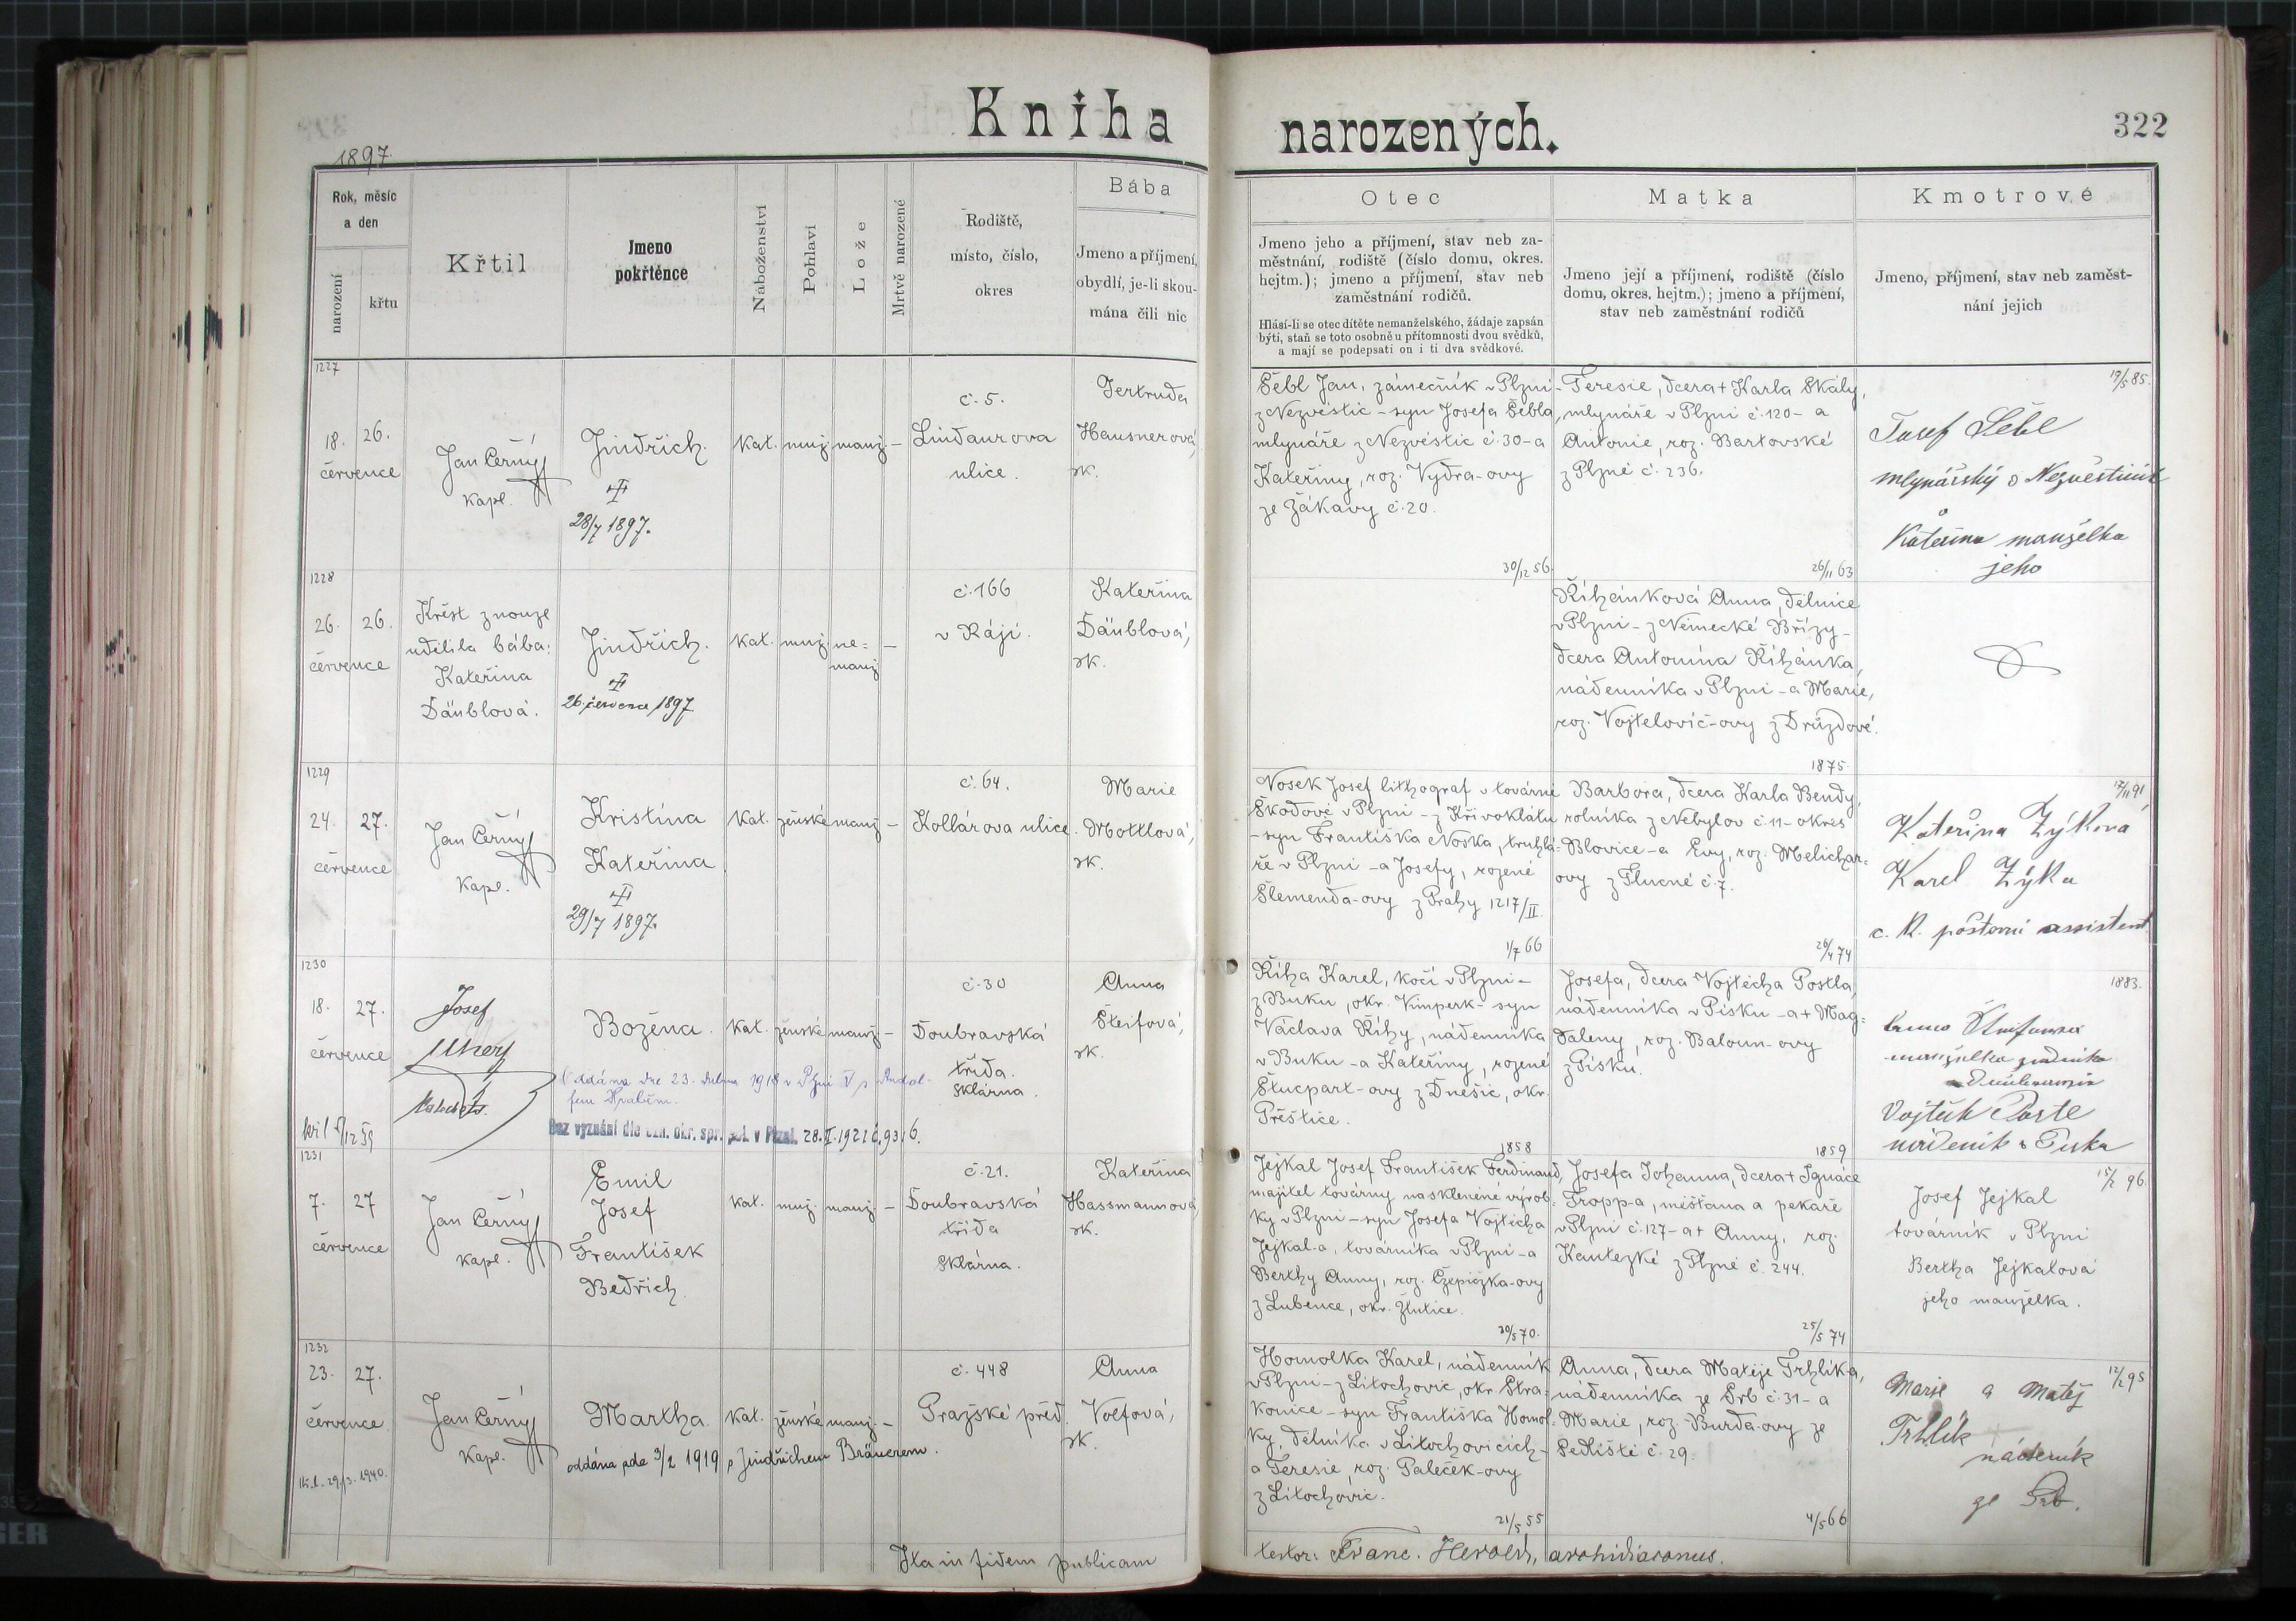 Kniha narozených.
322
1897
Rok, měsíc
a den
narození
křtu
Křtil
Jmeno
pokřtěnce
Náboženství
Pohlaví
Lože
Mrtvě narozené
Rodiště,
místo, číslo,
okres
Bába
Jmeno a příjmení,
obydlí, je-li skou-
mána čili nic
Otec
Jmeno jeho a příjmení, stav neb za-
městnání, rodiště (číslo domu, okres.
hejtm.); jmeno a příjmení, stav neb
zaměstnání rodičů.
Hlásí-li se otec dítěte nemanželského, žádaje zapsán
býti, staň se toto osobně u přítomnosti dvou svědků,
a mají se podepsati on i ti dva svědkové.
Matka
Jmeno její a příjmení, rodiště (číslo
domu, okres. hejtm.); jmeno a příjmení,
stav neb zaměstnání rodičů
Kmotrové
Jmeno, příjmení, stav neb zaměst-
nání jejich
1227
18. 26.
července
Jan Černý
kapl.
Jindřich.
28/7 1897.
kat. muž. manž. –
č. 5.
Lindaurova
ulice.
Gertruda
Hausnerová,
zk.
Šebl Jan, zámečník v Plzni -
z Nezvěstic - syn Josefa Šebla,
mlynáře z Nezvěstic č. 30 - a
Kateřiny, roz. Vydra-ovy
ze Žákavy č. 20.
30/12 56
Teresie, dcera + Karla Skály,
mlynáře v Plzni č. 120 - a
Antonie, roz. Bartovské
z Plzně č. 236.
26/11 63
19/5 85.
Josef Šebl
mlynářský z Nezvěstic
Kateřina manželka
jeho
1228
26. 26.
července
Křest z nouze
udělila bába:
Kateřina
Däublová.
Jindřich.
26. července 1897
kat. muž. ne=
manž –
č. 166
v Ráji.
Kateřina
Däublová,
zk.
Řihánková Anna, dělnice
v Plzni - z Německé Břízy -
dcera Antonína Řihánka,
nádenníka v Plzni - a Marie,
roz. Vojtelovič-ovy z Družďové.
1875.
1229
24. 27.
července
Jan Černý
kapl.
Kristina
Kateřina
29/7 1897.
kat. ženské manž. –
č. 64.
Kollárova ulice.
Marie
Mottlová,
zk.
Nosek Josef lithograf v továrně
Škodově v Plzni - z Křivoklátu
- syn Františka Noska, truhlá=
ře v Plzni - a Josefy, rozené
Šlemenda-ovy z Prahy 1217/II.
1/7 66
Barbora, dcera Karla Bendy,
rolníka z Nebylov č. 11 - okres
Blovice - a Evy, roz. Melichar=
ovy z Žlucné č. 7.
26/4 74
17/11 91
Kateřina Zýková
Karel Zýka
c. k. poštovní assistent
1230
18. 27.
července
Josef
Uherz
Božena.
kat. ženské manž. –
č. 30
Doubravská
třída.
Sklárna.
Anna
Šteifová,
zk.
Oddána dne 23. dubna 1918 v Plzni
Bez vyznání dle ozn. okr. spr. pol. v Plzni 28. I. 1921 č. 9316.
Říha Karel, kočí v Plzni -
z Buku, okr. Vimperk - syn
Václava Říhy, nádenníka
v Buku - a Kateřiny, rozené
Štucpart-ovy z Dnešic, okr.
Přeštice.
1858
Josefa, dcera Vojtěcha Postla,
nádenníka v Písku - a + Mag=
daleny, roz. Baloun-ovy
z Písku.
1859
1883.
Vojtěch Postl
nádeník z Písku
1231
7. 27
července
Jan Černý
kapl.
Emil
Josef
František
Bedřich.
kat. muž. manž. –
č. 21.
Doubravská
třída
Sklárna.
Kateřina
Hassmannová
zk.
Jejkal Josef František Ferdinand,
majitel továrny na skleněné výrob=
ky v Plzni - syn Josefa Vojtěcha
Jejkal-a, továrníka v Plzni - a
Berthy Anny, roz. Czepiczka-ovy
z Lubence, okr. Žlutice.
20/5 70.
Josefa Johanna, dcera + Ignáce
Tropp-a, měšťana a pekaře
v Plzni č. 127 - a + Anny, roz.
Kautezké z Plzně č. 244.
25/5 74
15/2 96.
Josef Jejkal
továrník v Plzni
Bertha Jejkalová
jeho manželka.
1232
23. 27.
července
Jan Černý
kapl.
Martha.
kat. ženské manž. –
oddána zde 3/2 1919 s Jindřichem Bräuerem.
č. 448
Pražské před.
Anna
Volfová,
zk.
Homolka Karel, nádenník
v Plzni - z Litochovic, okr. Stra=
konice - syn Františka Homol=
ky, dělníka v Litochovicích -
a Teresie, roz. Paleček-ovy
z Litochovic.
21/5 55
Anna, dcera Matěje Trhlíka,
nádenníka ze Srb č. 31 - a
Marie, roz. Burda-ovy ze
Sedliště č. 29.
4/5 66
12/2 95
Marie a Matěj
Trhlík
nádeník
ze Srb.
Ita in fidem publicam
testor: Franc. Herold, archidiaconus.